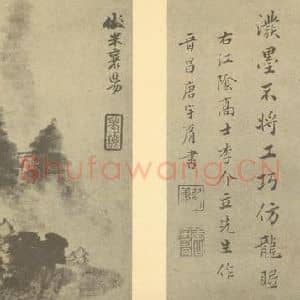 潑墨不將工巧仿龍眠
右江陰高士李介立先生作
晉昌唐宇肩書
倣米襄昜
Shufawang.CN